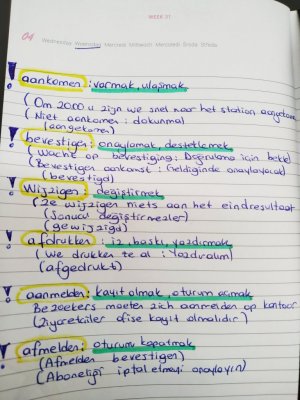 WEEK 31
04 Wednesday Woensdag Mercredi Mittwoch Mercoledi Środa Středa
! aankomen : varmak, ulaşmak
( Om 20.00 u zijn we snel naar het station aangekomen
( Niet aankomen : dokunma!
(aangekomen)
! bevestigen : onaylamak, desteklemek
( Wacht op bevestiging : Doğrulama için bekle)
( Bevestigen aankomst : Geldiginde onaylayacak)
(bevestigd)
! Wijzigen : değiştirmek
( Ze wijzigen niets aan het eindresultaat
(Sonucu değiştirmezler)
(gewijzigd)
! afdrukken : iz, baskı, yazdırmak
( We drukken te al : Yazdıralım)
(afgedrukt)
! aanmelden : kayıt olmak, oturum açmak
Bezoekers moeten zich aanmelden op kantoor
(Ziyaretçiler ofise kayıt olmalıdır)
! afmelden : oturum kapatmak
(Afmelden bevestigen)
(Aboneliği iptal etmeyi onaylayın)